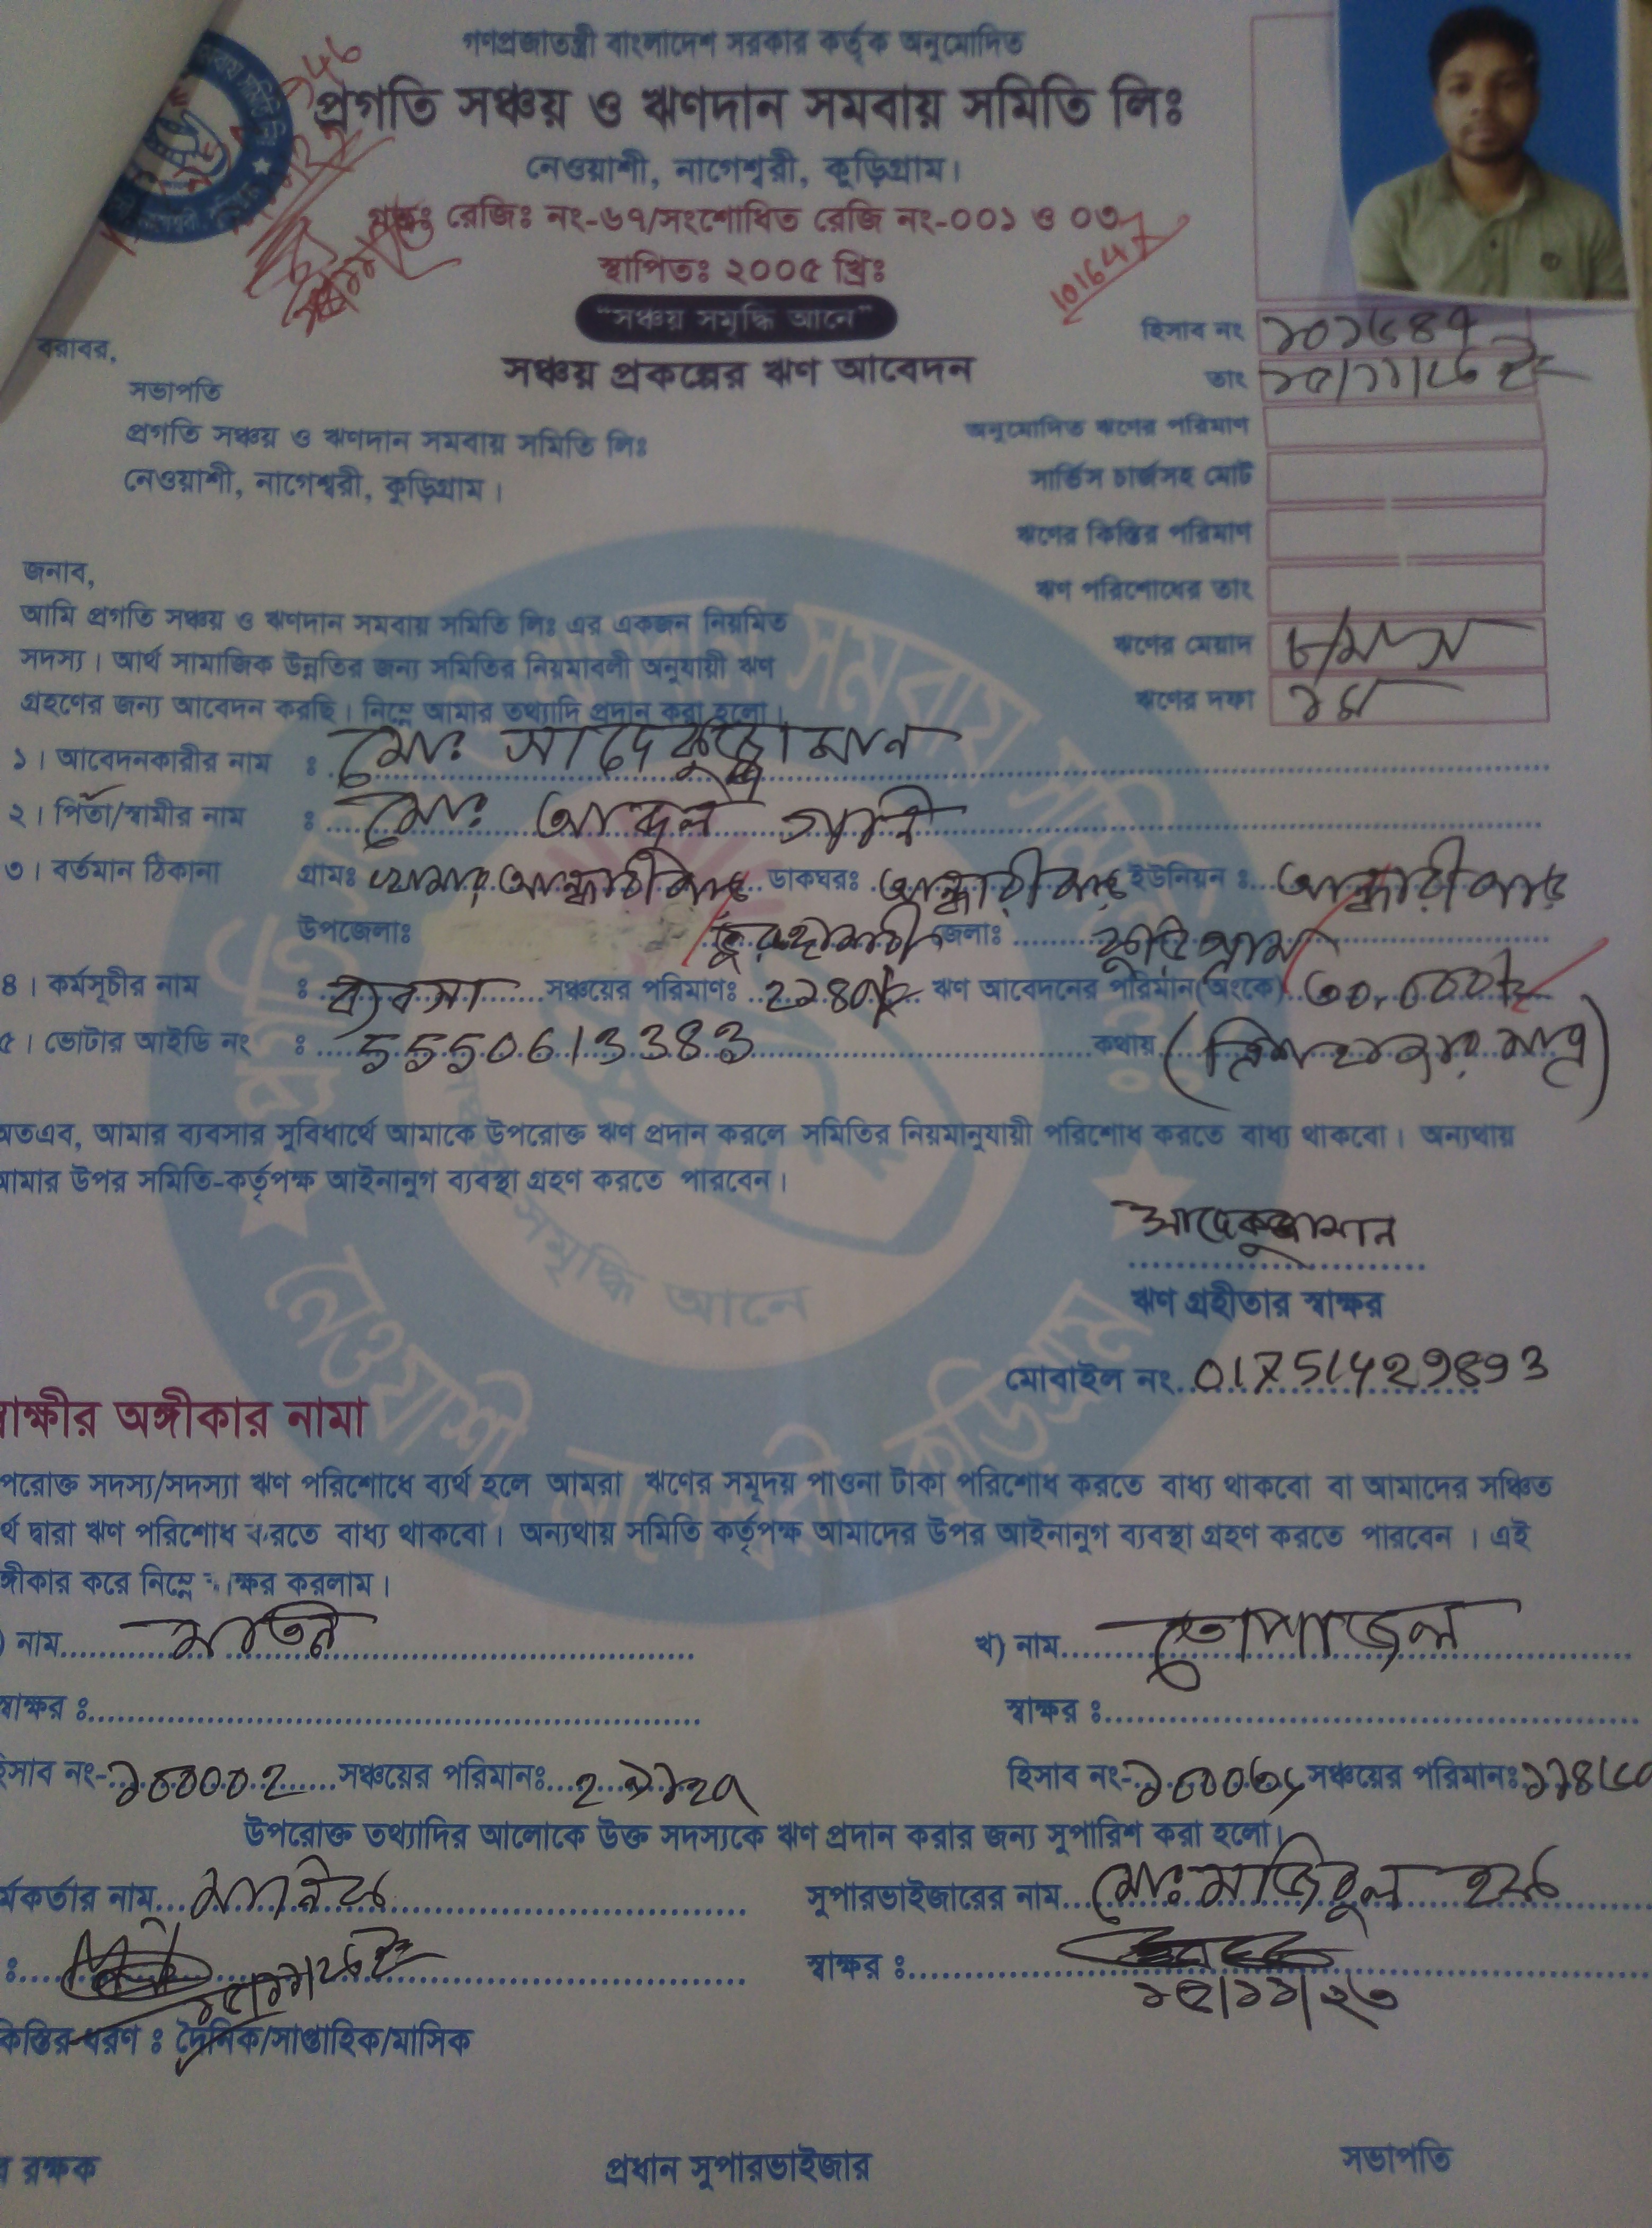 গণপ্রজাতন্ত্রী বাংলাদেশ সরকার কর্তৃক অনুমোদিত
প্রগতি সঞ্চয় ও ঋণদান সমবায় সমিতি লিঃ
নেওয়াশী, নাগেশ্বরী, কুড়িগ্রাম।
রেজিঃ নং-৬৭/সংশোধিত রেজি নং-০০১ ও ০৩
স্থাপিতঃ ২০০৫ খ্রিঃ
101647
"সঞ্চয় সমৃদ্ধি আনে"
সঞ্চয় প্রকল্পের ঋণ আবেদন
হিসাব নং ১০১৬৪৭
তাং
অনুমোদিত ঋণের পরিমাণ
সার্ভিস চার্জসহ মোট
ঋণের কিস্তির পরিমাণ
ঋণ পরিশোধের তাং
ঋণের মেয়াদ
ঋণের দফা ১ম
বরাবর,
সভাপতি
প্রগতি সঞ্চয় ও ঋণদান সমবায় সমিতি লিঃ
নেওয়াশী, নাগেশ্বরী, কুড়িগ্রাম।
জনাব,
আমি প্রগতি সঞ্চয় ও ঋণদান সমবায় সমিতি লিঃ এর একজন নিয়মিত
সদস্য। আর্থ সামাজিক উন্নতির জন্য সমিতির নিয়মাবলী অনুযায়ী ঋণ
গ্রহণের জন্য আবেদন করছি। নিম্নে আমার তথ্যাদি প্রদান করা হলো।
১। আবেদনকারীর নাম : মোঃ সাদেকুজ্জামান
২। পিতা/স্বামীর নাম : মোঃ আব্দুল গনি
৩। বর্তমান ঠিকানা গ্রামঃ খামার আন্ধারীঝাড় ডাকঘরঃ আন্ধারীঝাড় ইউনিয়ন ঃ আন্ধারীঝাড়
উপজেলাঃ ভুরুঙ্গামারী জেলাঃ কুড়িগ্রাম
৪। কর্মসূচীর নাম ঃ ব্যবসা সঞ্চয়ের পরিমাণঃ ২১৪০/- ঋণ আবেদনের পরিমান(অংকে) ৩০,০০০/-
৫। ভোটার আইডি নং ঃ 5550613383 কথায় (ত্রিশ হাজার মাত্র)
অতএব, আমার ব্যবসার সুবিধার্থে আমাকে উপরোক্ত ঋণ প্রদান করলে সমিতির নিয়মানুযায়ী পরিশোধ করতে বাধ্য থাকবো। অন্যথায়
আমার উপর সমিতি-কর্তৃপক্ষ আইনানুগ ব্যবস্থা গ্রহণ করতে পারবেন।
সাদেকুজ্জামান
ঋণ গ্রহীতার স্বাক্ষর
মোবাইল নং 01751429893
স্বাক্ষীর অঙ্গীকার নামা
উপরোক্ত সদস্য/সদস্যা ঋণ পরিশোধে ব্যর্থ হলে আমরা ঋণের সমূদয় পাওনা টাকা পরিশোধ করতে বাধ্য থাকবো বা আমাদের সঞ্চিত
র্থ দ্বারা ঋণ পরিশোধ করতে বাধ্য থাকবো। অন্যথায় সমিতি কর্তৃপক্ষ আমাদের উপর আইনানুগ ব্যবস্থা গ্রহণ করতে পারবেন। এই
ঙ্গীকার করে নিম্নে স্বাক্ষর করলাম।
) নাম মতিন খ) নাম তোপাজ্জল
স্বাক্ষর ঃ স্বাক্ষর ঃ
হিসাব নং- ১০০০০২ সঞ্চয়ের পরিমানঃ হিসাব নং- সঞ্চয়ের পরিমানঃ
উপরোক্ত তথ্যাদির আলোকে উক্ত সদস্যকে ঋণ প্রদান করার জন্য সুপারিশ করা হলো।
র্মকর্তার নাম মানিক সুপারভাইজারের নাম মোঃ মজিবুল হক
স্বাক্ষর ঃ
১৫/১১/২৩
কিস্তির ধরণ ঃ দৈনিক/সাপ্তাহিক/মাসিক
রক্ষক প্রধান সুপারভাইজার সভাপতি